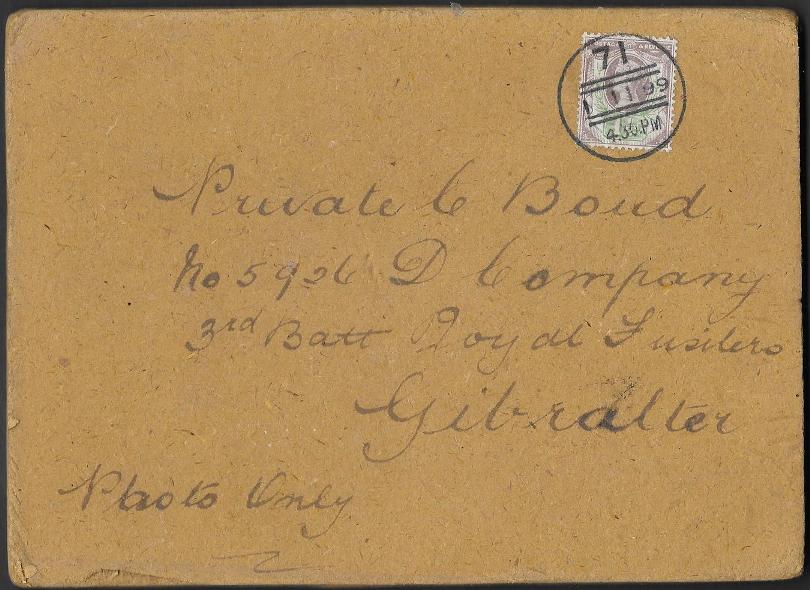 71
1 11 99
4.30.PM
Private C Bond
No 5926 D Company
3rd Batt Royal Fusilers
Gibralter
Photo Only